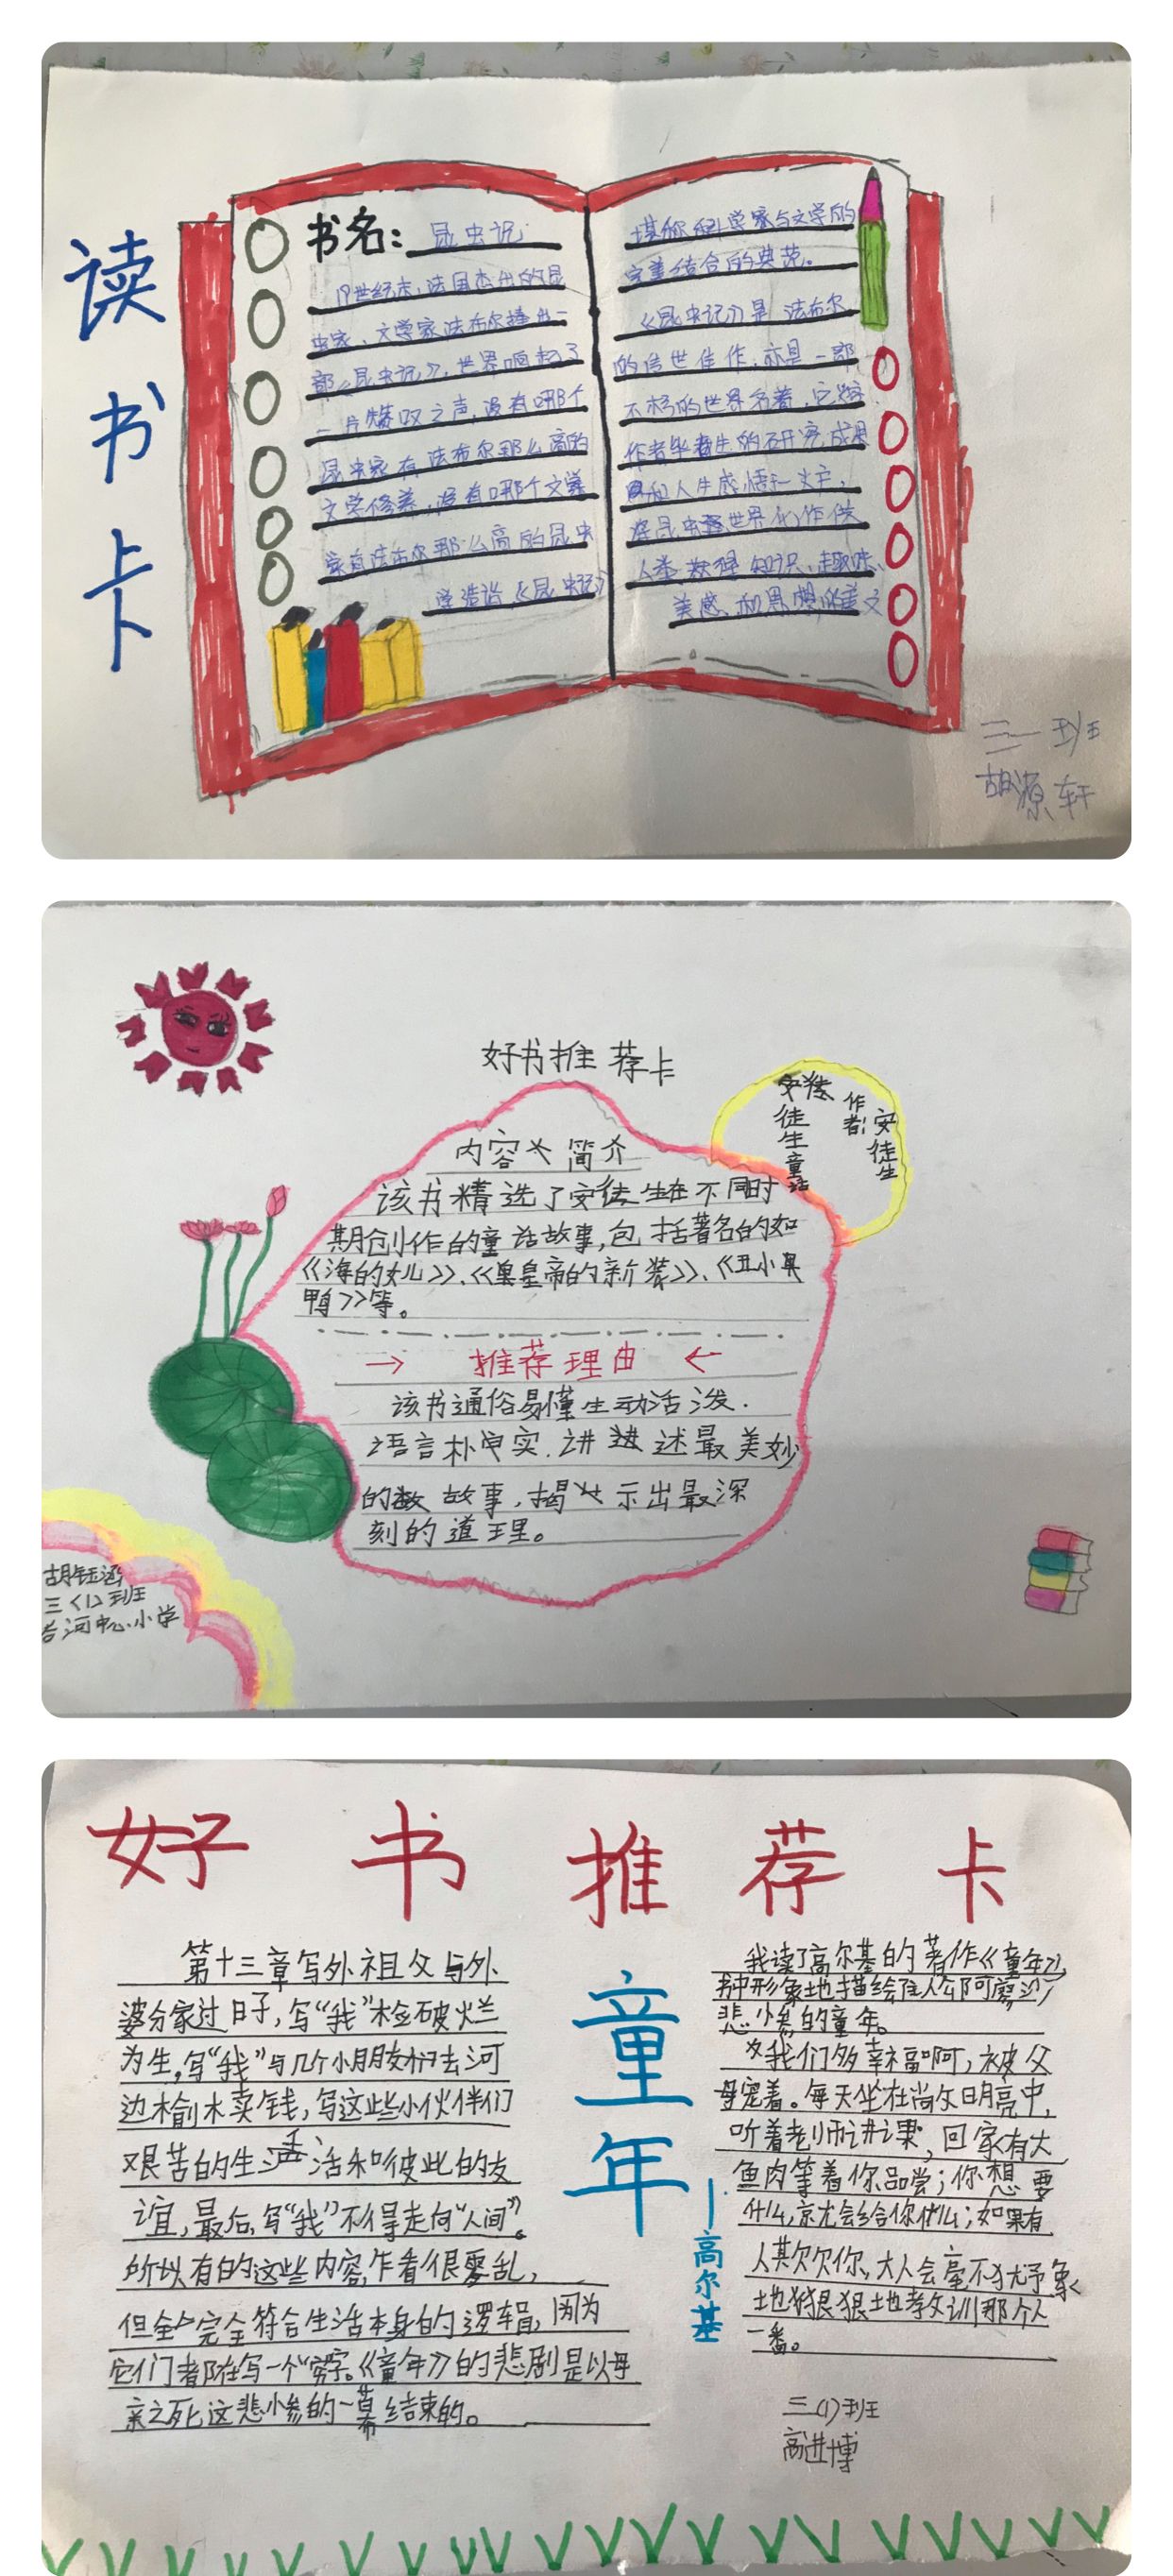 读
书
卡
书名：昆虫记
19世纪末，法国杰出的昆
虫家、文学家法布尔捧出一
部《昆虫记》，世界响起了
一片赞叹之声，没有哪个
昆虫家有法布尔那么高的
文学修养，没有哪个文
家有法布尔那么高的昆虫
学造诣，《昆虫记》
堪称科学家与文学的
完美结合的典范。
《昆虫记》是法布尔
的传世佳作，亦是一部
不朽的世界名著，它
作者毕生的研究成果
和人生感悟一
昆虫世界
人类 知识、趣味、
美感 和思想的美文
三一班
胡源轩
好书推荐卡
安徒生童话
作者：安徒生
内容 简介
该书精选了安徒生在不同时
期创作的童话故事，包括著名的如
《海的女儿》、《皇帝的新装》、《丑小
鸭》等。
→ 推荐理由 ←
该书通俗易懂生动活泼.
语言朴实.讲述最美妙
的故事，揭示出最深
刻的道理。
胡钰涵
三（1）班
河中心小学
好书推荐卡
第十三章写外祖父与外
婆分家过日子，写“我”检破烂
为生，写“我”与几个小朋友们去河
边榆木卖钱，写这些小伙伴们
艰苦的生活和彼此的友
谊，最后，写“我”不得走向“人间”。
所以有的这些内容，乍看很零乱，
但完全符合生活本身的逻辑，因为
它们者都在写一个“穷”字。《童年》的悲剧是以母
亲之死这悲惨的一幕结束的。
童年
——高尔基
我读了高尔基的著作《童年》，
书中形象地描绘主人公阿廖沙
悲惨的童年。
我们多幸福啊，被父
母宠着。每天坐在尚文日月亮中，
听着老师讲课，回家有大
鱼肉等着你品尝；你想要
什么，就会给你什么；如果有
人欺欠你，大人会毫不犹予象
地狠狠地教训那个人
一番。
三（1）班
高进博